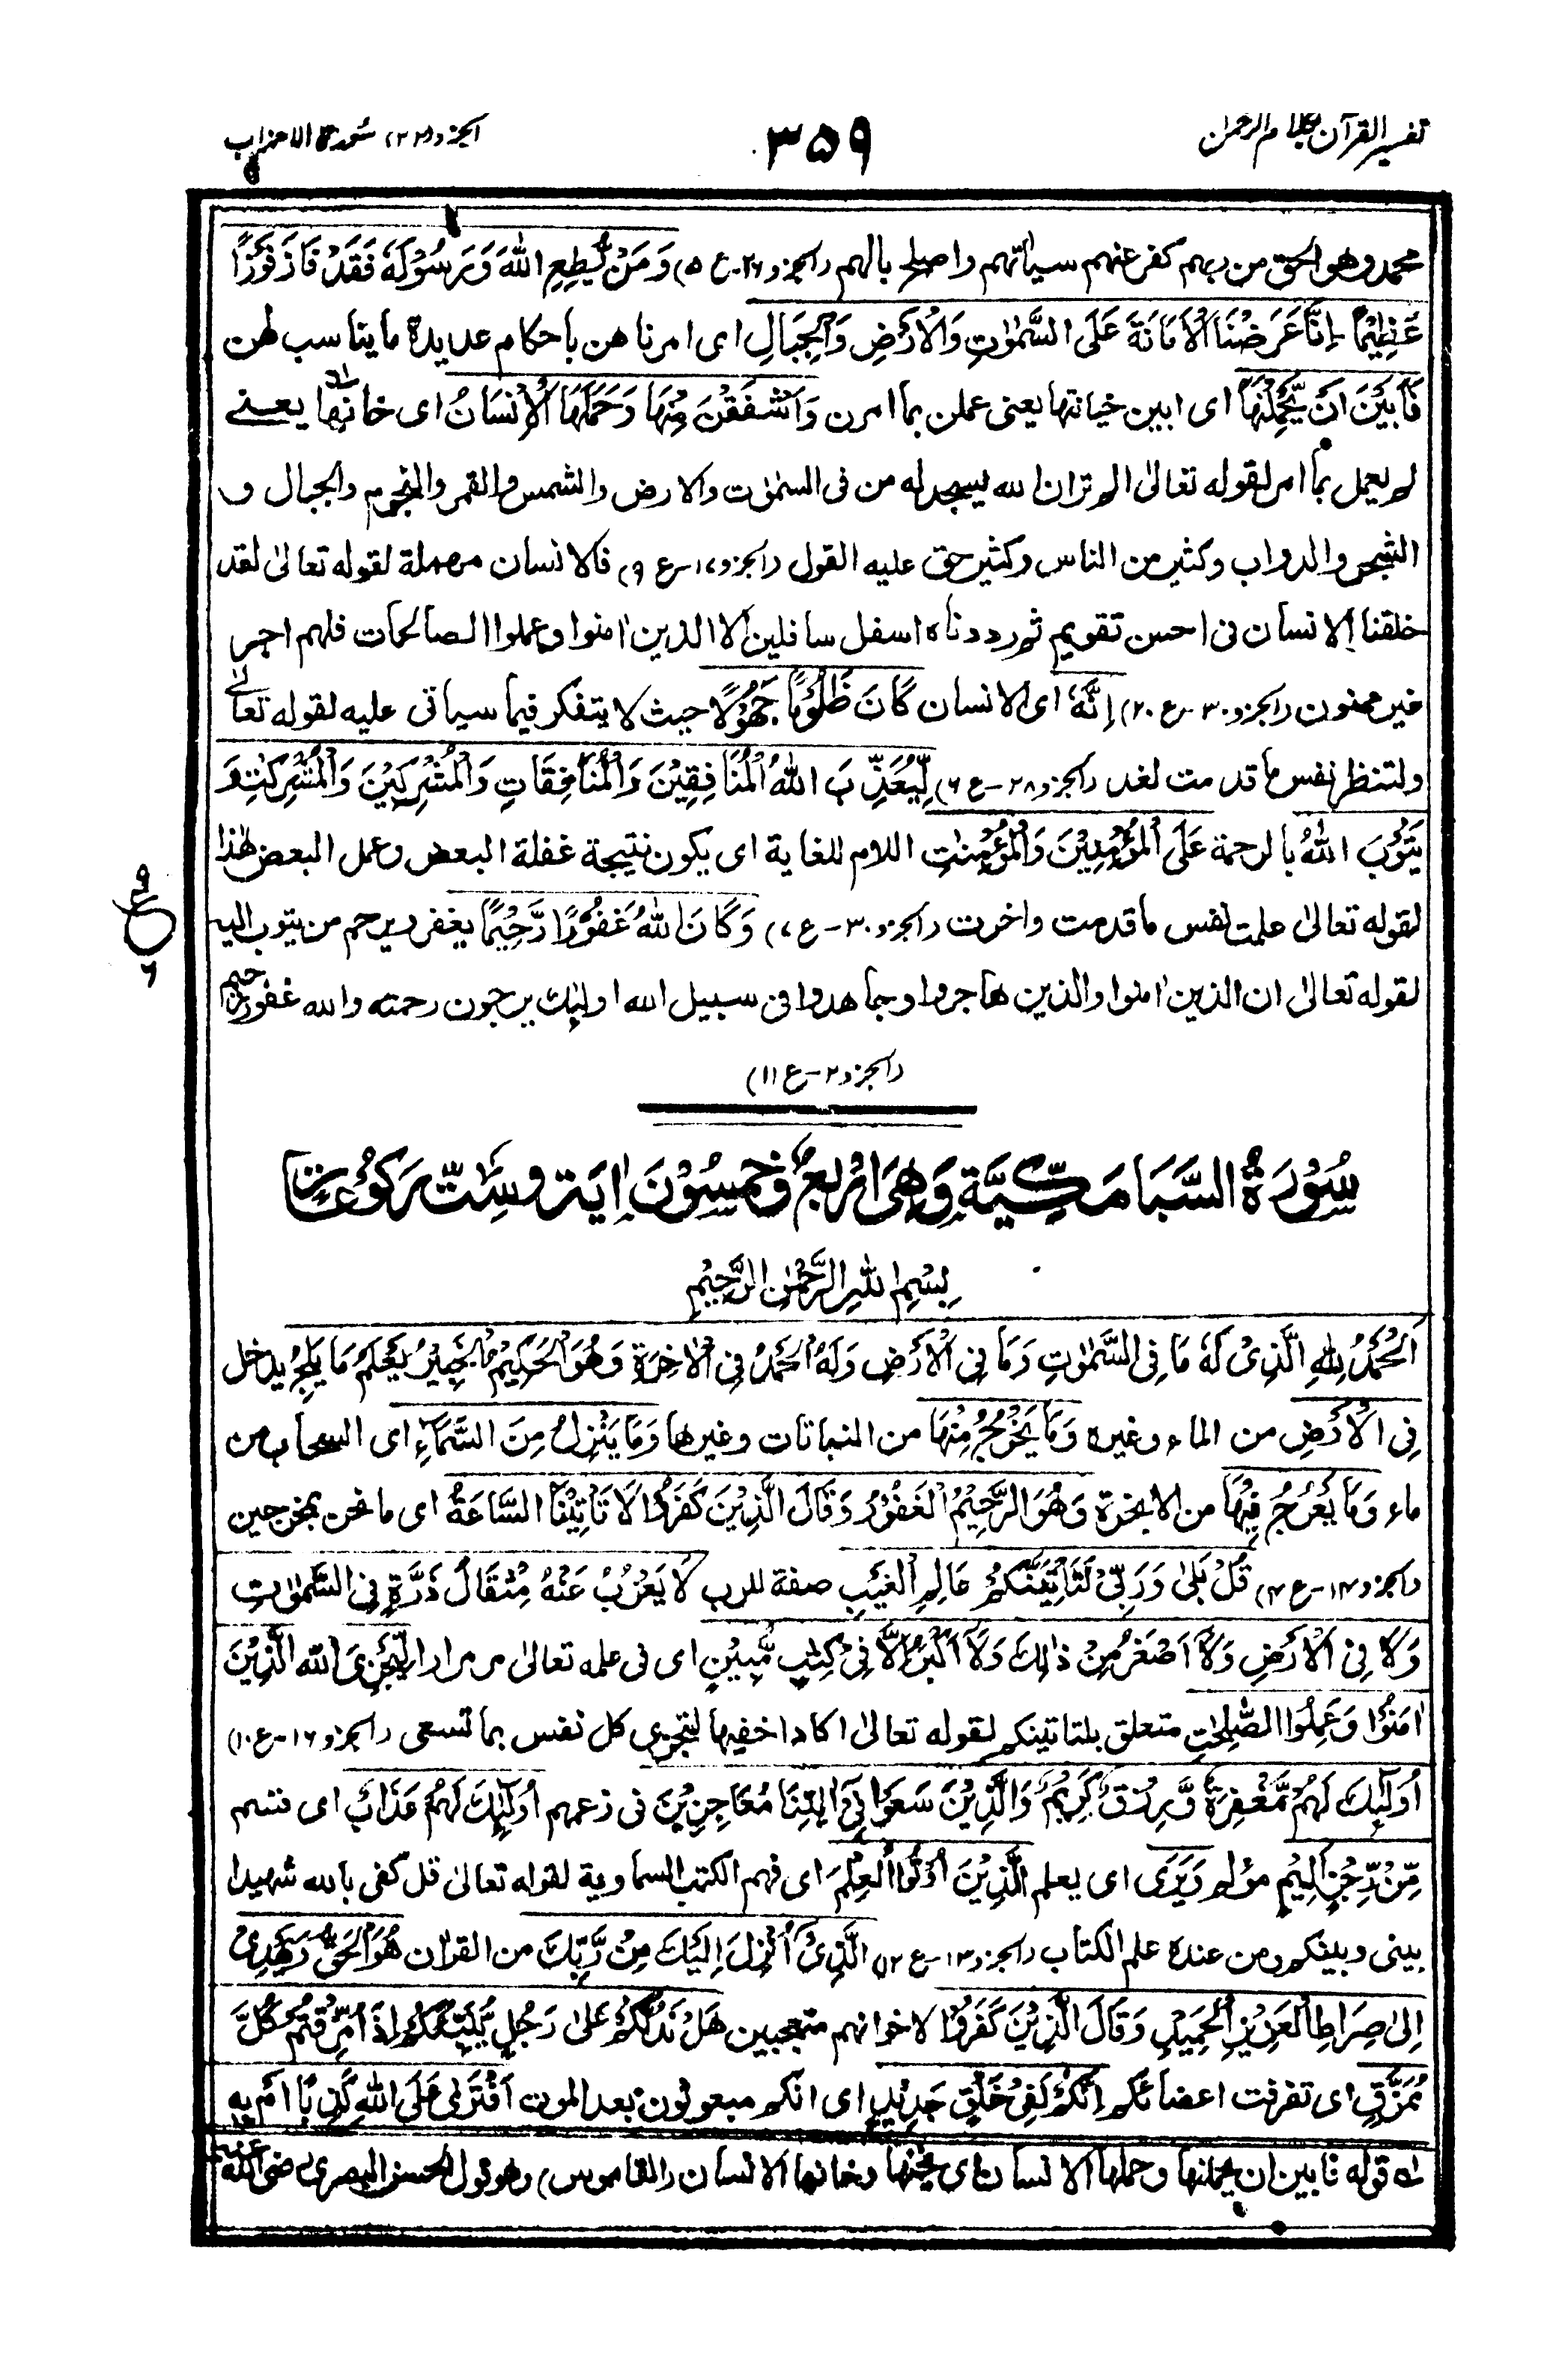 تفسير القرآن بكلام الرحمن
٣٥٩
الجزو (٢٢) سورة الاحزاب
محمد وهو الحق من ربهم كفر عنهم سياٰتهم واصلح بالهم (الجزو ٢٦-ع ٥) وَمَنْ يُّطِعِ اللّٰهَ وَرَسُوْلَهٗ فَقَدْ فَازَ فَوْزًا
عَظِيْمًا ـ اِنَّا عَرَضْنَا الْاَمَانَةَ عَلَى السَّمٰوٰتِ وَالْاَرْضِ وَالْجِبَالِ اى امرناهن باحكام عديدة ما يناسب لهن
فَاَبَيْنَ اَنْ يَّحْمِلْنَهَا اى ابين خيانتها يعنى عملن بما امرن وَاَشْفَقْنَ مِنْهَا وَحَمَلَهَا الْاِنْسَانُ اى خانها يعنے
لم يعمل بما امر لقوله تعالىٰ الم تران الله يسجد له من فى السمٰوٰت والارض والشمس والقمر والنجوم والجبال و
الشجر والدواب وكثير من الناس وكثير حق عليه القول (الجزو ١٧-ع ٩) فالانسان مهملة لقوله تعالىٰ لقد
خلقنا الانسان فى احسن تقويم ثم رددناه اسفل سافلين الا الذين اٰمنوا وعملوا الصالحات فلهم اجر
غير ممنون (الجزو ٣٠-ع ٢٠) اِنَّهٗ اى الانسان كَانَ ظَلُوْمًا جَهُوْلًا حيث لا يتفكر فيما سياتى عليه لقوله تعالىٰ
ولتنظر نفس ما قدمت لغد (الجزو ٢٨-ع ٦) لِّيُعَذِّبَ اللّٰهُ الْمُنَافِقِيْنَ وَالْمُنَافِقَاتِ وَالْمُشْرِكِيْنَ وَالْمُشْرِكٰتِ وَ
يَتُوْبَ اللّٰهُ بالرحمة عَلَى الْمُؤْمِنِيْنَ وَالْمُؤْمِنٰتِ اللام للغاية اى يكون نتيجة غفلة البعض وعمل البعض هٰذا
لقوله تعالىٰ علمت نفس ما قدمت واخرت (الجزو ٣٠-ع ٧) وَكَانَ اللّٰهُ غَفُوْرًا رَّحِيْمًا يغفر ويرحم من يتوب اليه
لقوله تعالىٰ ان الذين اٰمنوا والذين هاجروا وجاهدوا فى سبيل الله اولٰئك يرجون رحمته والله غفور رحيم
(الجزو ٢-ع ١١)
٩
ع
٦
سُوْرَةُ السَّبَا مَكِّيَّةٌ وَهِىَ اَرْبَعٌ وَّخَمْسُوْنَ اٰيَة وسِتُّ رَكُوْعَات
بِسْمِ اللهِ الرَّحْمٰنِ الرَّحِيْمِ
اَلْحَمْدُ لِلّٰهِ الَّذِىْ لَهٗ مَا فِى السَّمٰوٰتِ وَمَا فِى الْاَرْضِ وَلَهُ الْحَمْدُ فِى الْاٰخِرَةِ وَهُوَ الْحَكِيْمُ الْخَبِيْرُ يَعْلَمُ مَا يَلِجُ يدخل
فِى الْاَرْضِ من الماء وغيره وَمَا يَخْرُجُ مِنْهَا من النباتات وغيرها وَمَا يَنْزِلُ مِنَ السَّمَآءِ اى السحاب من
ماء وَمَا يَعْرُجُ فِيْهَا من الابخرة وَهُوَ الرَّحِيْمُ الْغَفُوْرُ وَقَالَ الَّذِيْنَ كَفَرُوْا لَا تَاْتِيْنَا السَّاعَةُ اى ما نحن بمخرجين
(الجزو ١٤-ع ٤) قُلْ بَلٰى وَرَبِّىْ لَتَاْتِيَنَّكُمْ عَالِمِ الْغَيْبِ صفة للرب لَا يَعْزُبُ عَنْهُ مِثْقَالُ ذَرَّةٍ فِى السَّمٰوٰتِ
وَلَا فِى الْاَرْضِ وَلَآ اَصْغَرُ مِنْ ذٰلِكَ وَلَآ اَكْبَرُ اِلَّا فِىْ كِتٰبٍ مُّبِيْنٍ اى فى علمه تعالىٰ مر مرارا لِّيَجْزِىَ الله الَّذِيْنَ
اٰمَنُوْا وَعَمِلُوا الصّٰلِحٰتِ متعلق بلتاتينكم لقوله تعالىٰ اكاد اخفيها لتجزى كل نفس بما تسعى (الجزو ١٦-ع ١٠)
اُولٰٓئِكَ لَهُمْ مَّغْفِرَةٌ وَّرِزْقٌ كَرِيْمٌ وَالَّذِيْنَ سَعَوْا فِىْٓ اٰيٰتِنَا مُعَاجِزِيْنَ فى زعمهم اُولٰٓئِكَ لَهُمْ عَذَابٌ اى قسم
مِّنْ رِّجْزٍ اَلِيْمٍ مؤلم وَيَرَى اى يعلم الَّذِيْنَ اُوْتُوا الْعِلْمَ اى فهم الكتب السماوية لقوله تعالىٰ قل كفى بالله شهيدا
بينى وبينكم ومن عنده علم الكتاب (الجزو ١٣-ع ١٢) الَّذِىْٓ اُنْزِلَ اِلَيْكَ مِنْ رَّبِّكَ من القراٰن هُوَ الْحَقَّ وَيَهْدِىْ
اِلٰى صِرَاطِ الْعَزِيْزِ الْحَمِيْدِ وَقَالَ الَّذِيْنَ كَفَرُوْا لاخوانهم متعجبين هَلْ نَدُلُّكُمْ عَلٰى رَجُلٍ يُّنَبِّئُكُمْ اِذَا مُزِّقْتُمْ كُلَّ
مُمَزَّقٍ اى تفرقت اعضائكم اِنَّكُمْ لَفِىْ خَلْقٍ جَدِيْدٍ اى انكم مبعوثون بعد الموت اَفْتَرٰى عَلَى اللّٰهِ كَذِبًا اَمْ بِهٖ
لـه قوله فابين ان يحملنها وحملها الانسان اى يخنها وخانها الانسان (القاموس) وهو قول الحسن البصرى رضى الله عنه